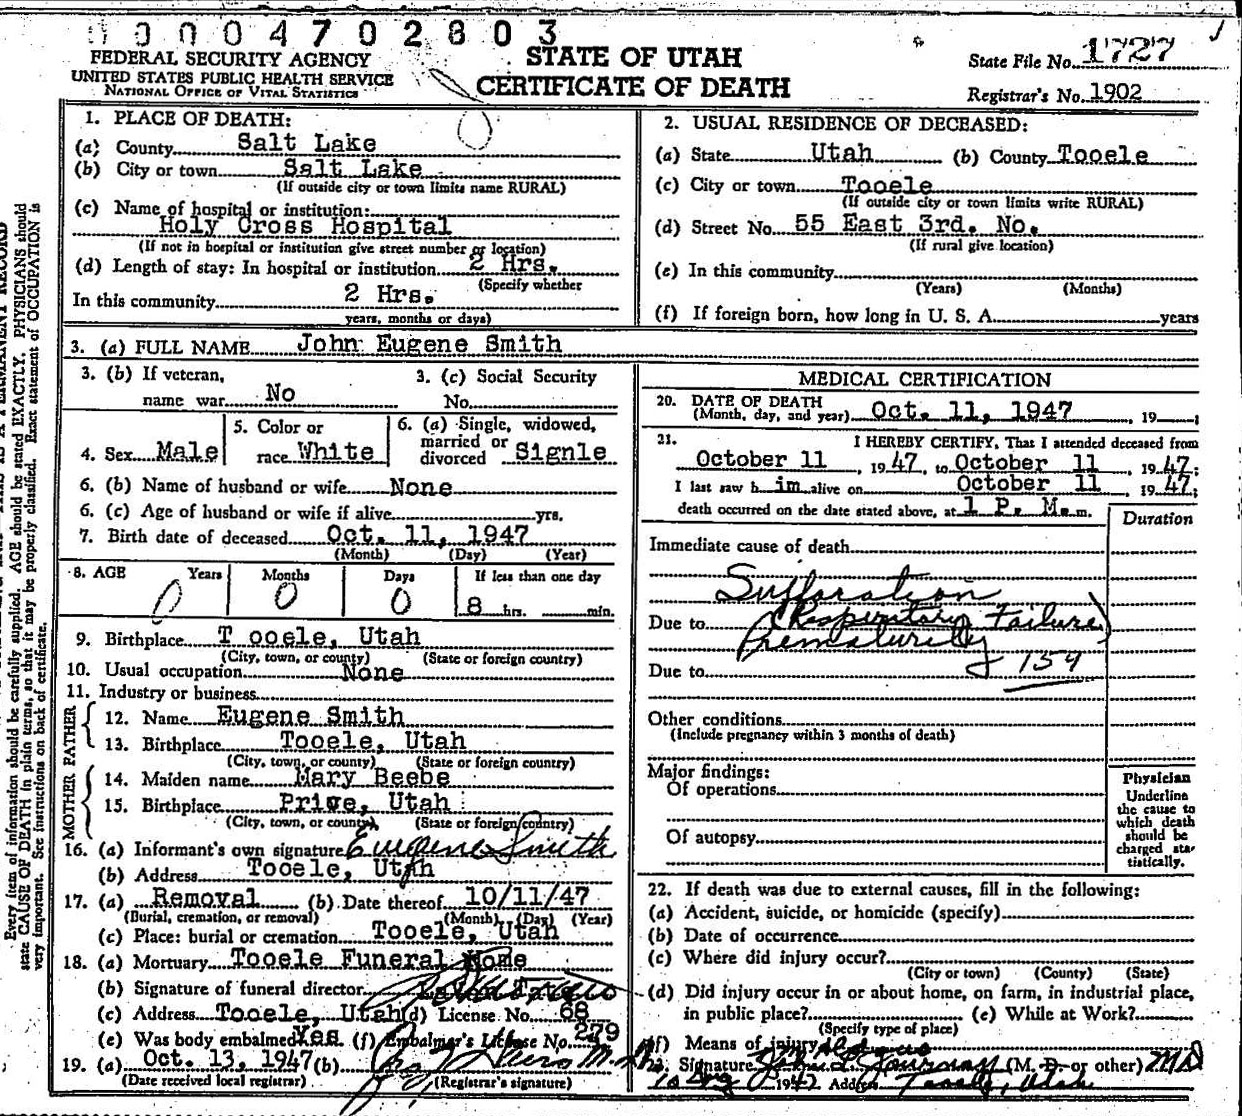 0004702803
FEDERAL SECURITY AGENCY
UNITED STATES PUBLIC HEALTH SERVICE
NATIONAL OFFICE OF VITAL STATISTICS
STATE OF UTAH
CERTIFICATE OF DEATH
State File No. 1727
Registrar's No. 1902
1. PLACE OF DEATH:
(a) County Salt Lake
(b) City or town Salt Lake
(If outside city or town limits name RURAL)
(c) Name of hospital or institution:
Holy Cross Hospital
(If not in hospital or institution give street number or location)
(d) Length of stay: In hospital or institution 2 Hrs.
(Specify whether
In this community 2 Hrs.
years, months or days)
2. USUAL RESIDENCE OF DECEASED:
(a) State Utah (b) County Tooele
(c) City or town Tooele
(If outside city or town limits write RURAL)
(d) Street No. 55 East 3rd. No.
(If rural give location)
(e) In this community
(Years) (Months)
(f) If foreign born, how long in U. S. A. years
3. (a) FULL NAME John Eugene Smith
3. (b) If veteran,
name war No
3. (c) Social Security
No.
4. Sex Male
5. Color or
race White
6. (a) Single, widowed,
married or
divorced Signle
6. (b) Name of husband or wife None
6. (c) Age of husband or wife if alive yrs.
7. Birth date of deceased Oct. 11, 1947
(Month) (Day) (Year)
8. AGE Years Months Days If less than one day
0 0 0 8 hrs. min.
9. Birthplace T ooele, Utah
(City, town, or county) (State or foreign country)
10. Usual occupation None
11. Industry or business
FATHER
12. Name Eugene Smith
13. Birthplace Tooele, Utah
(City, town, or county) (State or foreign country)
MOTHER
14. Maiden name Mary Beebe
15. Birthplace Price, Utah
(City, town, or county) (State or foreign country)
16. (a) Informant's own signature Eugene Smith
(b) Address Tooele, Utah
17. (a) Removal (b) Date thereof 10/11/47
(Burial, cremation, or removal) (Month) (Day) (Year)
(c) Place: burial or cremation Tooele, Utah
18. (a) Mortuary Tooele Funeral Home
(b) Signature of funeral director
(c) Address Tooele, Utah (d) License No. 68
(e) Was body embalmed Yes (f) Embalmer's License No. 279
19. (a) Oct. 13, 1947 (b)
(Date received local registrar) (Registrar's signature)
MEDICAL CERTIFICATION
20. DATE OF DEATH
(Month, day, and year) Oct. 11, 1947 , 19 ;
21. I HEREBY CERTIFY, That I attended deceased from
October 11 , 19 47, to October 11 , 19 47;
I last saw h im alive on October 11 , 19 47;
death occurred on the date stated above, at 1 P. M. m.
Duration
Immediate cause of death
Suffocation
Due to (Respiratory Failure)
Prematurity
Due to 159
Other conditions
(Include pregnancy within 3 months of death)
Major findings:
Of operations
Of autopsy
Physician
Underline
the cause to
which death
should be
charged sta-
tistically.
22. If death was due to external causes, fill in the following:
(a) Accident, suicide, or homicide (specify)
(b) Date of occurrence
(c) Where did injury occur?
(City or town) (County) (State)
(d) Did injury occur in or about home, on farm, in industrial place,
in public place? (e) While at Work?
(Specify type of place)
(f) Means of injury
Signature (M. D. or other) MD
Address Tooele, Utah
Every item of information should be carefully supplied. AGE should be stated EXACTLY. PHYSICIANS should
state CAUSE OF DEATH in plain terms, so that it may be properly classified. Exact statement of OCCUPATION is
very important. See instructions on back of certificate.